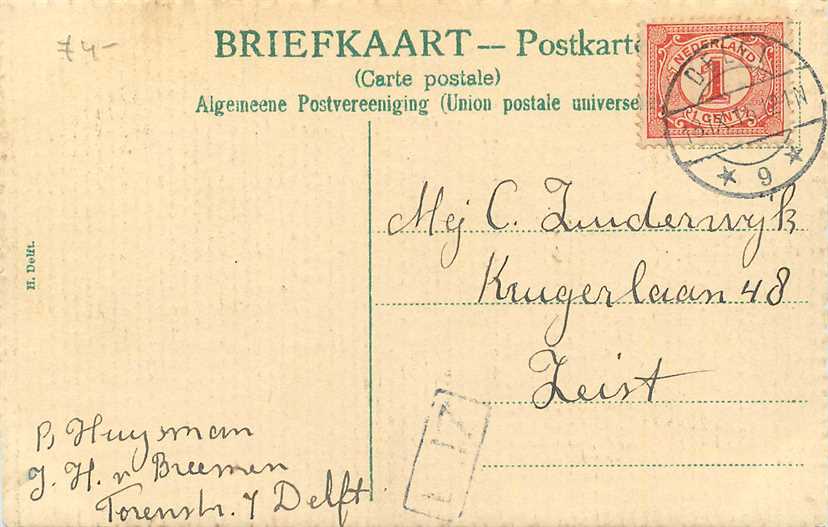 74-
BRIEFKAART -- Postkarte
(Carte postale)
Algemeene Postvereeniging (Union postale universe
NEDERLAND
1
CENT
DELFT
1N
★ 9 ★
Mej C. Zuiderwyk
Krugerlaan 48
Zeist
H. Delft.
P, Huysman
J. H. v Breemen
Torenstr. 7 Delft